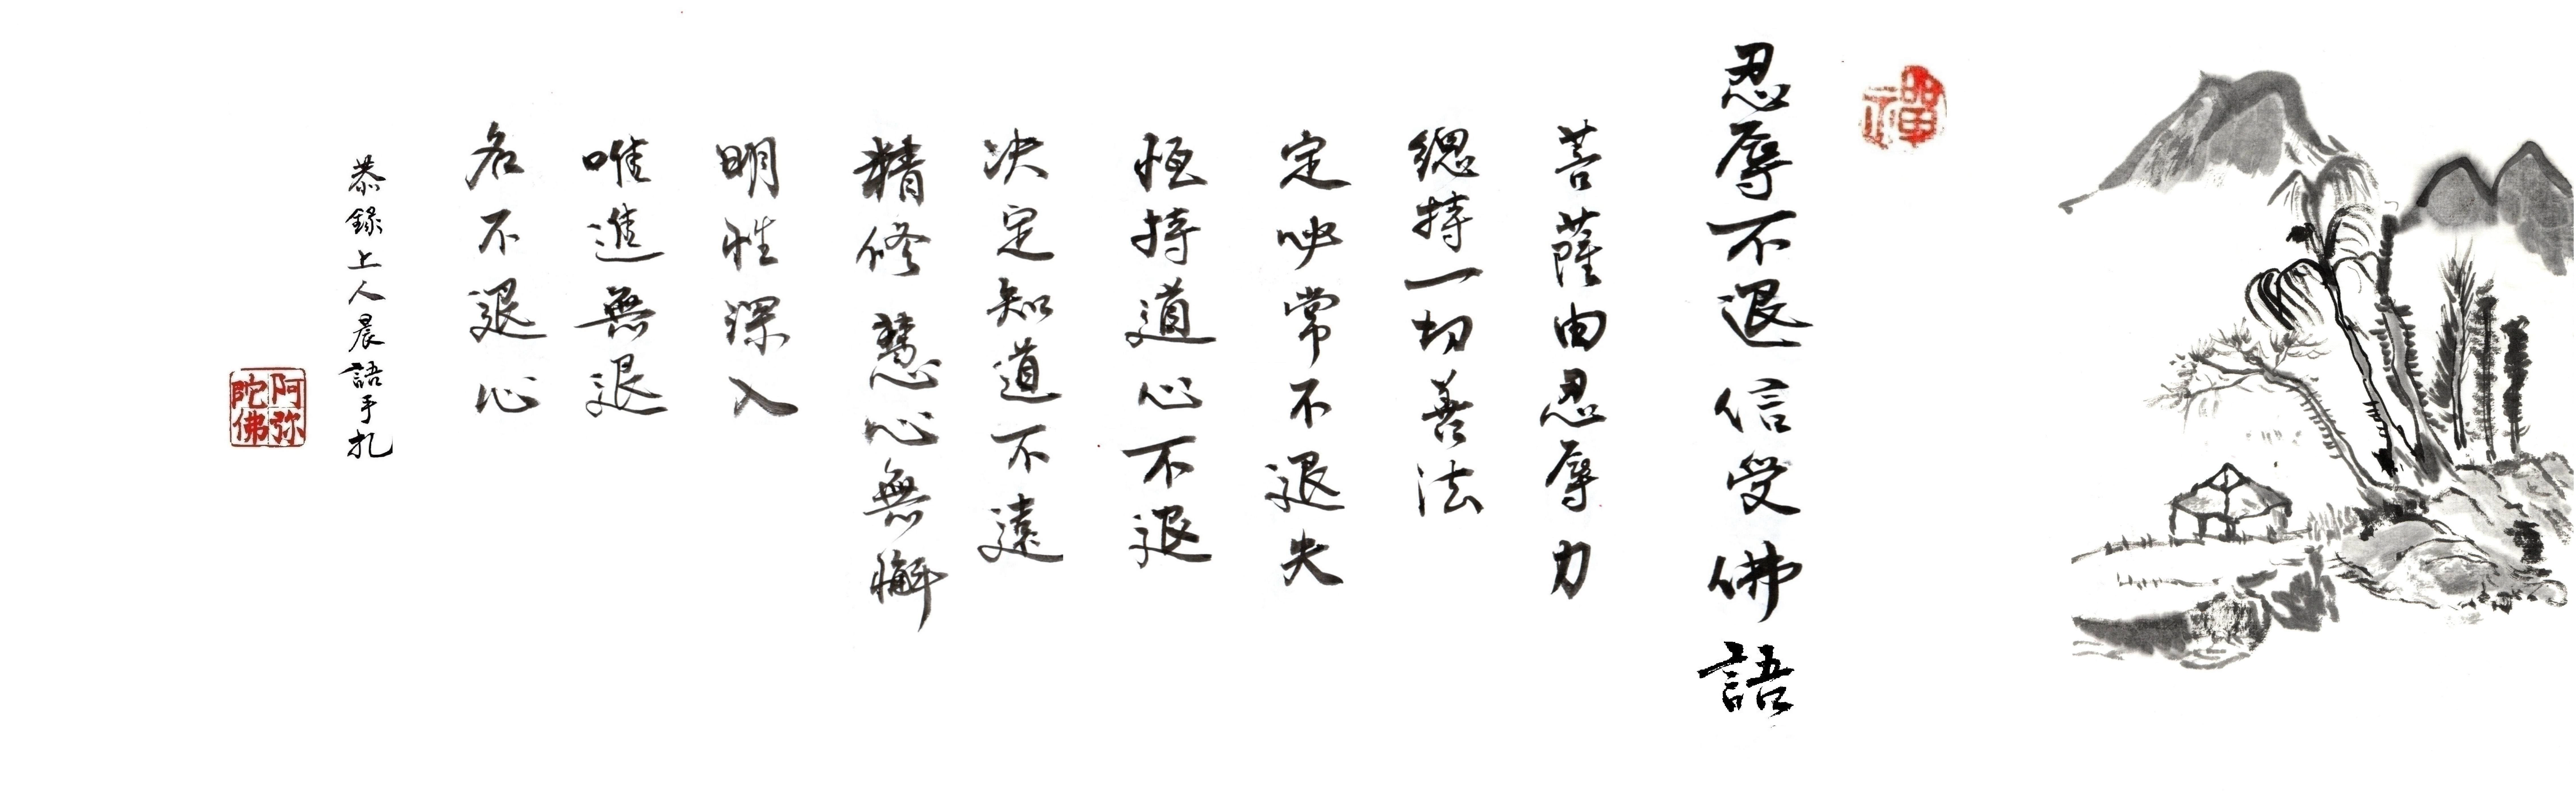 禪
忍辱不退信受佛語
菩薩由忍辱力
總持一切善法
定必常不退失
恒持道心不退
决定知道不遠
精修慧心無懈
明性深入
唯進無退
名不退心
恭錄上人晨語手札
阿弥陀佛